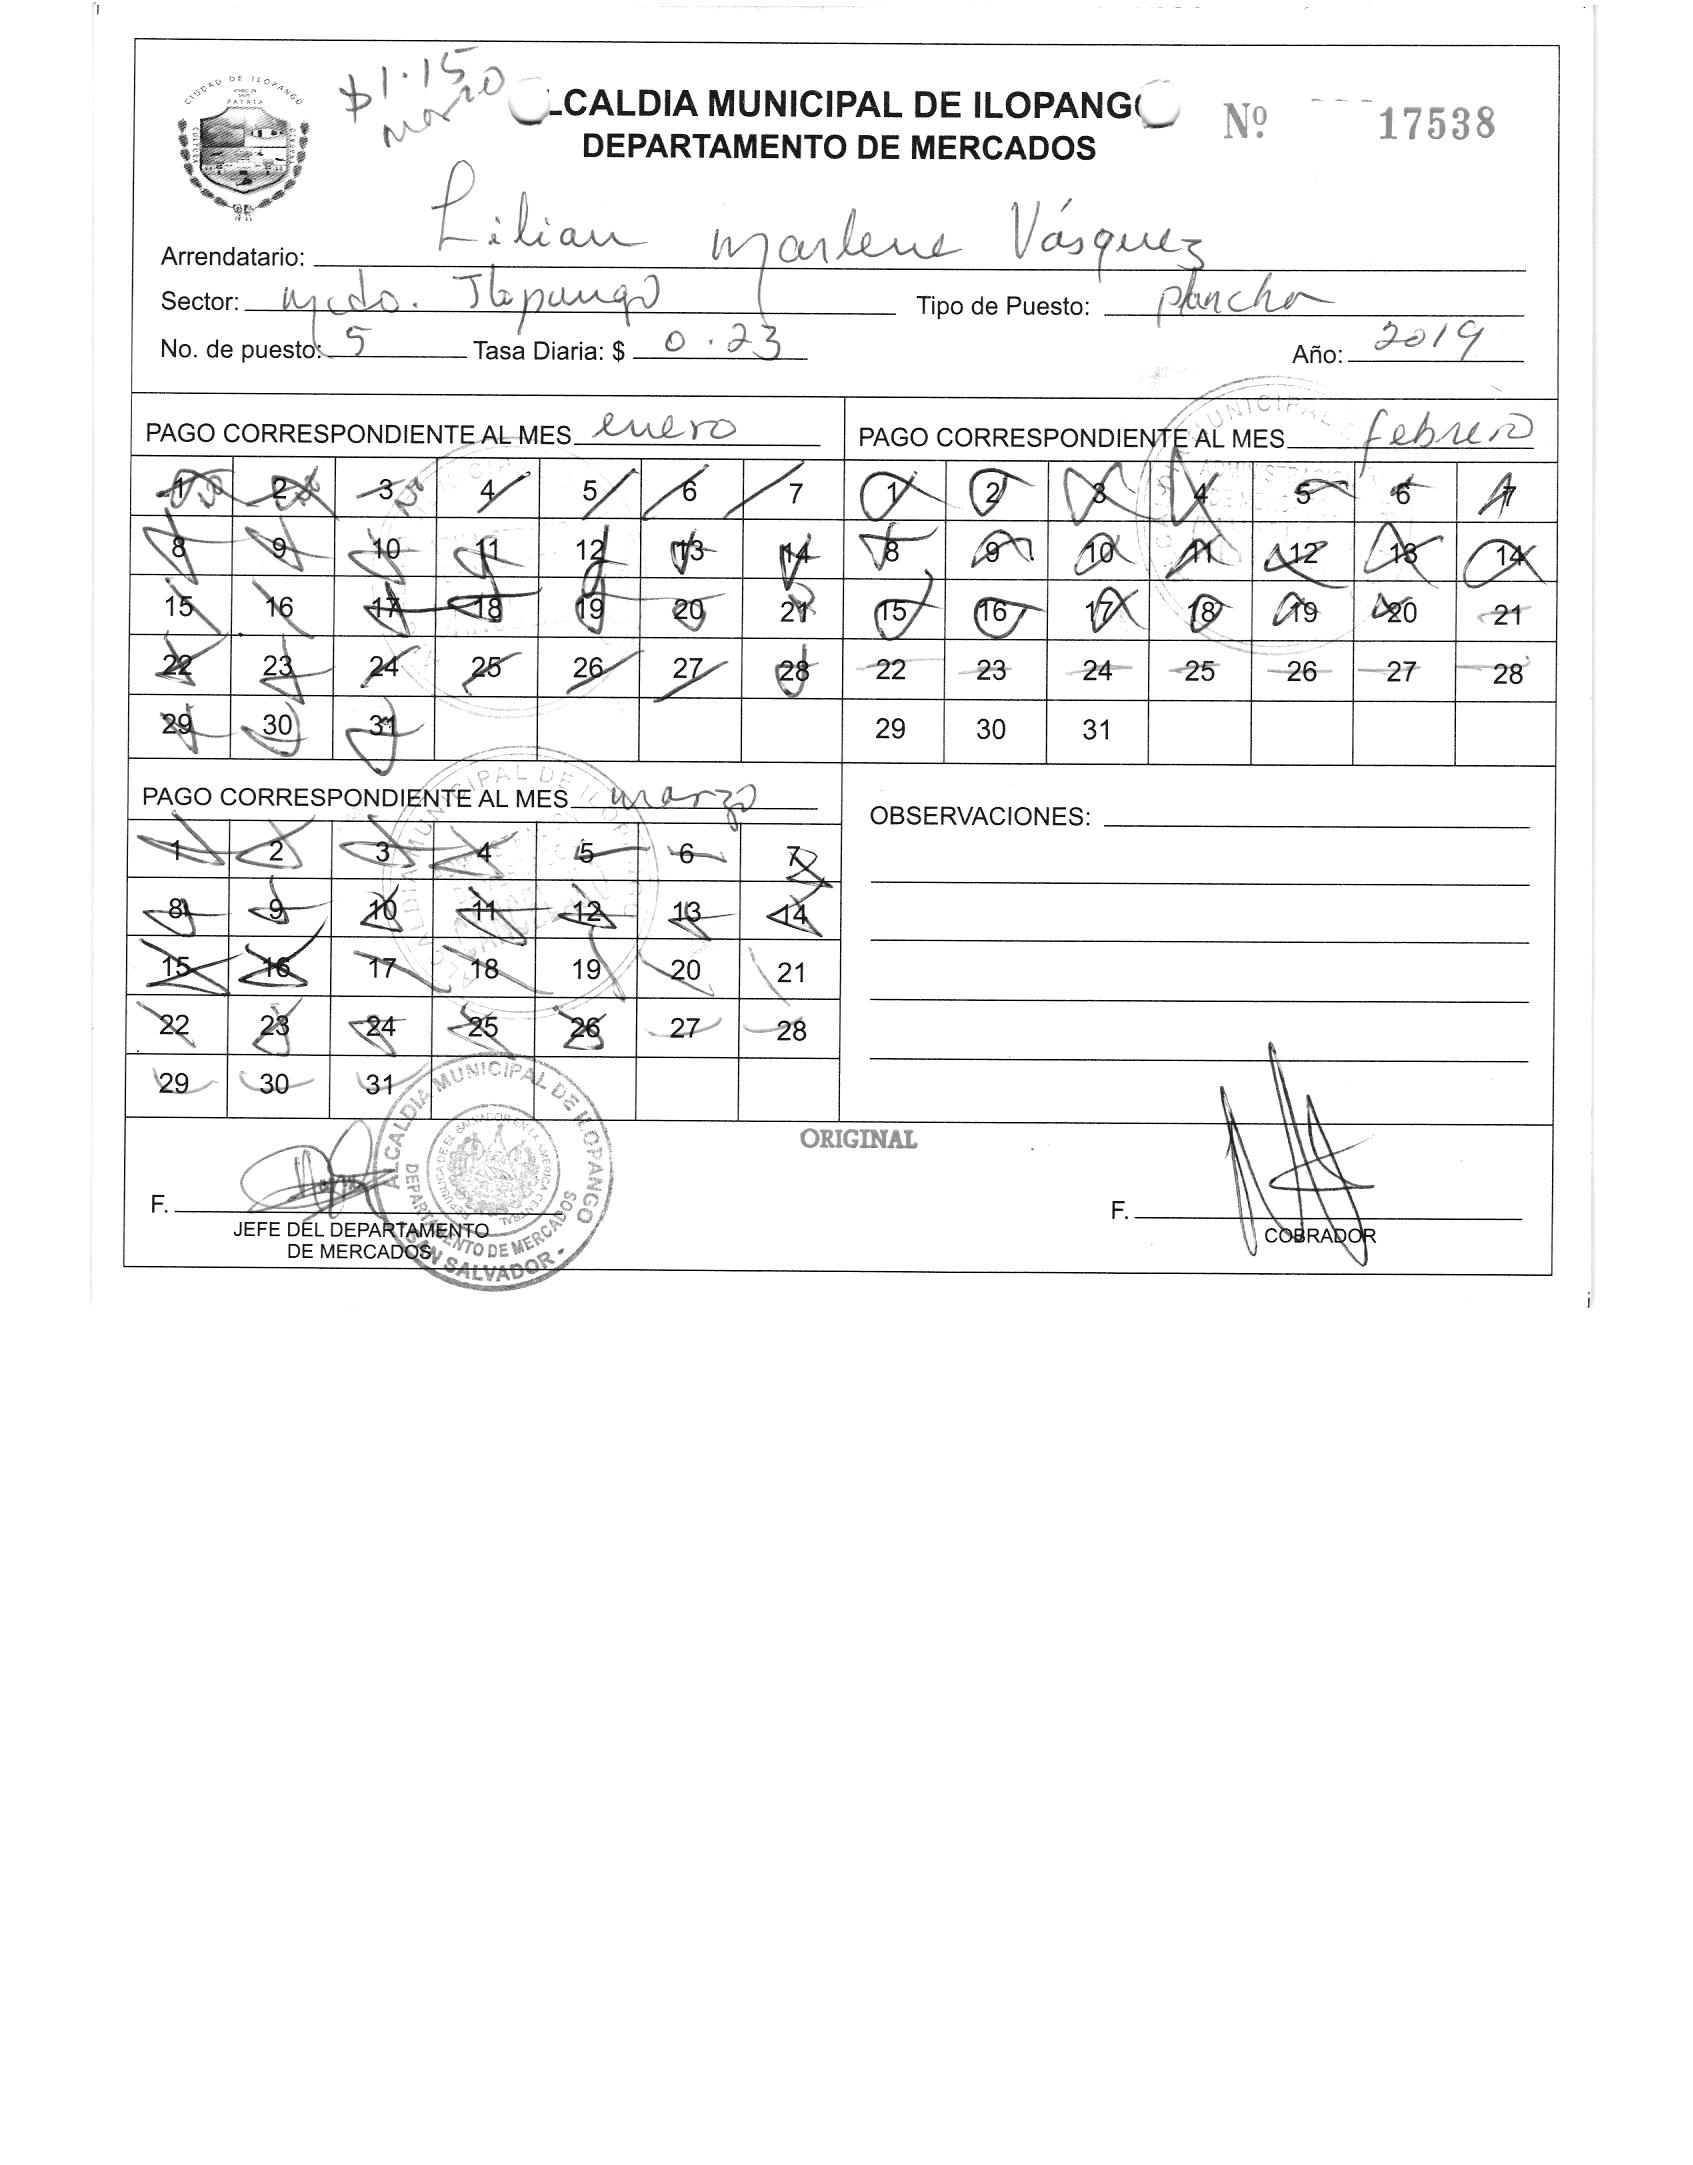 CIUDAD DE ILOPANGO
PATRIA
$1.15
Marzo
LCALDIA MUNICIPAL DE ILOPANG
DEPARTAMENTO DE MERCADOS
Nº 17538
Arrendatario: Lilian Marlene Vásquez
Sector: Mcdo. Ilopango Tipo de Puesto: plancha
No. de puesto: 5 Tasa Diaria: $ 0.23 Año: 2019
PAGO CORRESPONDIENTE AL MES enero
1 2 3 4 5 6 7
8 9 10 11 12 13 14
15 16 17 18 19 20 21
22 23 24 25 26 27 28
29 30 31
PAGO CORRESPONDIENTE AL MES febrero
1 2 3 4 5 6 7
8 9 10 11 12 13 14
15 16 17 18 19 20 21
22 23 24 25 26 27 28
29 30 31
PAGO CORRESPONDIENTE AL MES marzo
1 2 3 4 5 6 7
8 9 10 11 12 13 14
15 16 17 18 19 20 21
22 23 24 25 26 27 28
29 30 31
OBSERVACIONES:
ORIGINAL
F.
JEFE DEL DEPARTAMENTO
DE MERCADOS
ALCALDIA MUNICIPAL DE ILOPANGO
DEPARTAMENTO DE MERCADOS
REPUBLICA DE EL SALVADOR EN LA AMERICA CENTRAL
SAN SALVADOR -
F.
COBRADOR